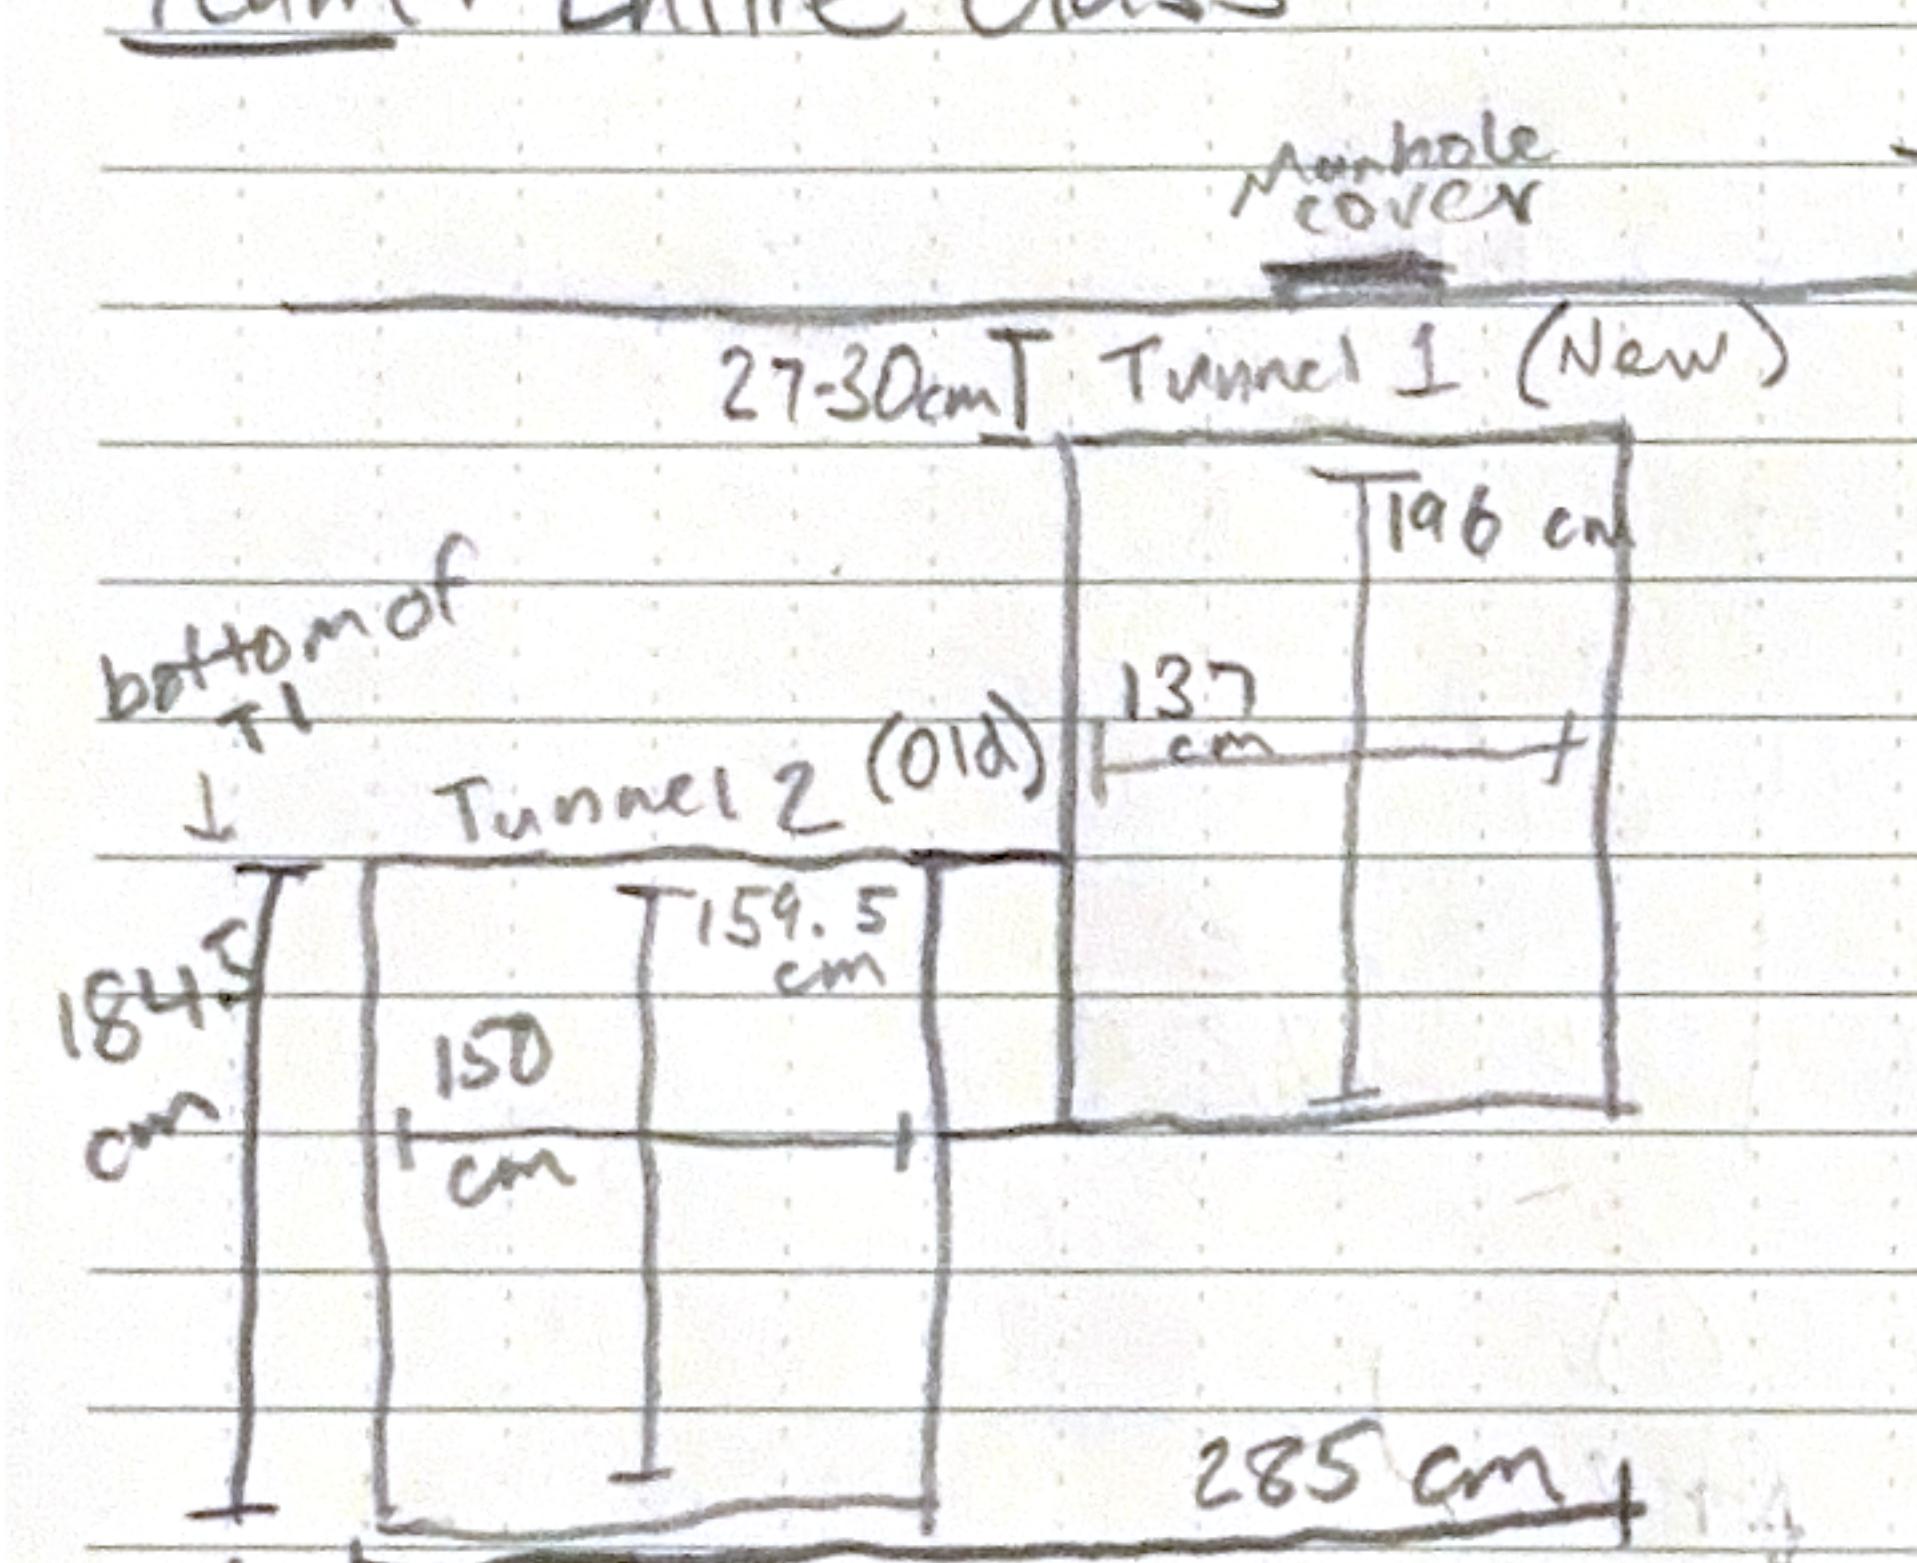 Team: Entire Class
Manhole
cover
27-30cm
Tunnel 1 (New)
196 cm
bottom of
T1
↓
137
cm
Tunnel 2 (Old)
159.5
cm
184.5
cm
150
cm
285 cm